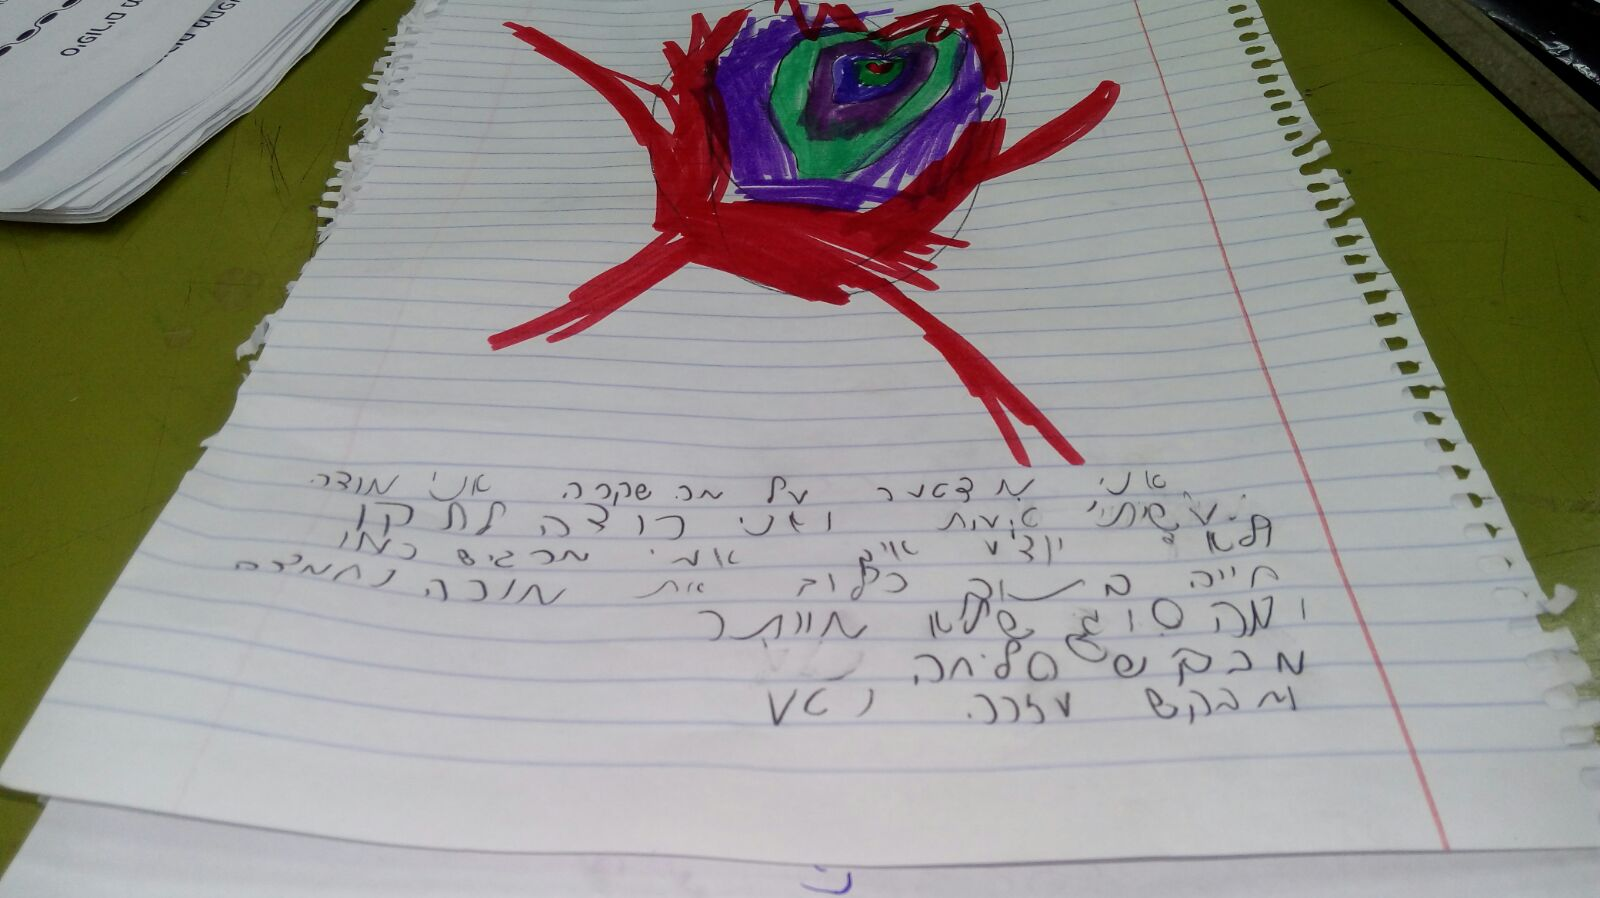 אני מצטער על מה שקרה אני מודה
שעשיתי טעות ואני רוצה לתקן
ולא יודע איך אני מרגיש כמו
חייה כלוב את מורה נחמדה
ומהסוג שלא מוותר
מבקש סליחה
ומבקש עזרה נטע